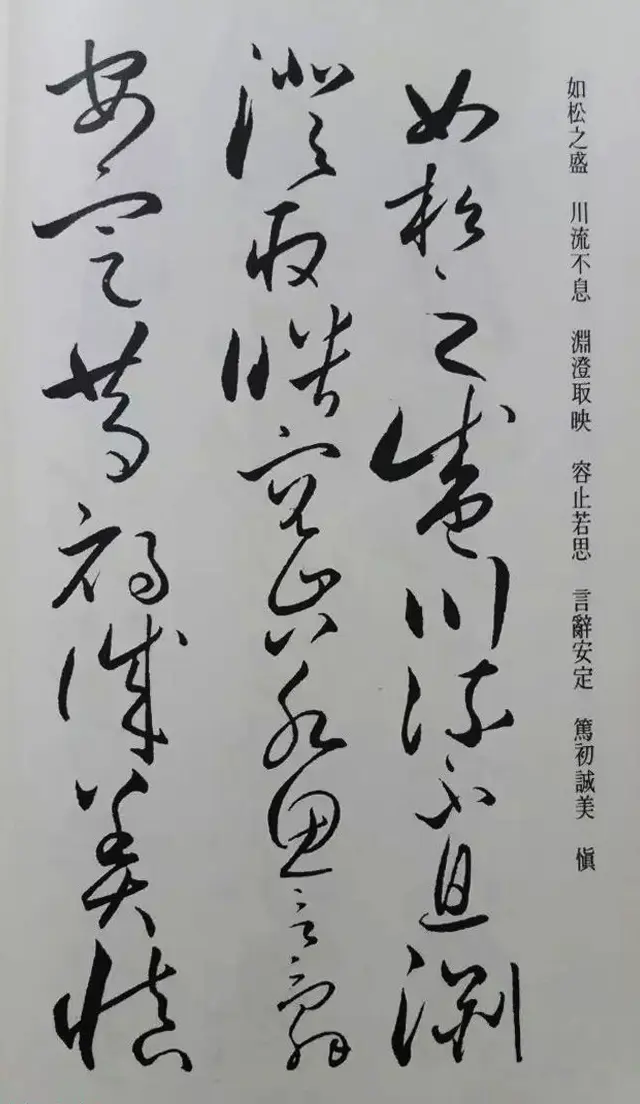 如松之盛　川流不息　淵澄取映　容止若思　言辭安定　篤初誠美　愼
如松之盛川流不息淵
澄取映容止若思言辭
安定篤初誠美愼